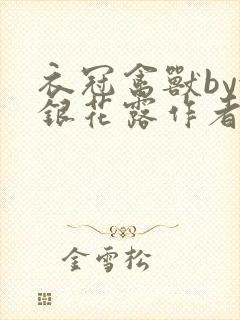 衣冠禽獸by
銀花露作者
金雪松